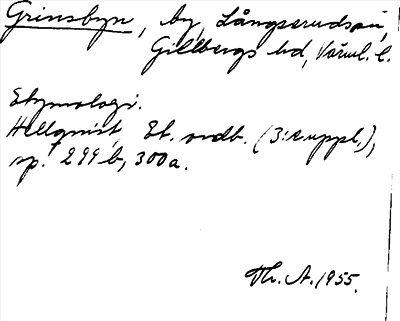 Grinsbyn, by, Långseruds sn,
Gillbergs hd, Värml. l.
Etymologi.
Hellquist, Et. ordb. (3:e uppl.),
sp. 299 b, 300 a.
Th. A. 1955.